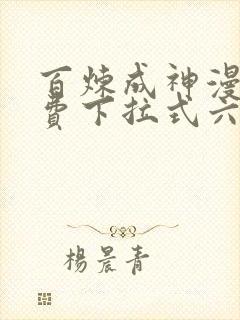 百炼成神漫
費下拉式六
楊晨青